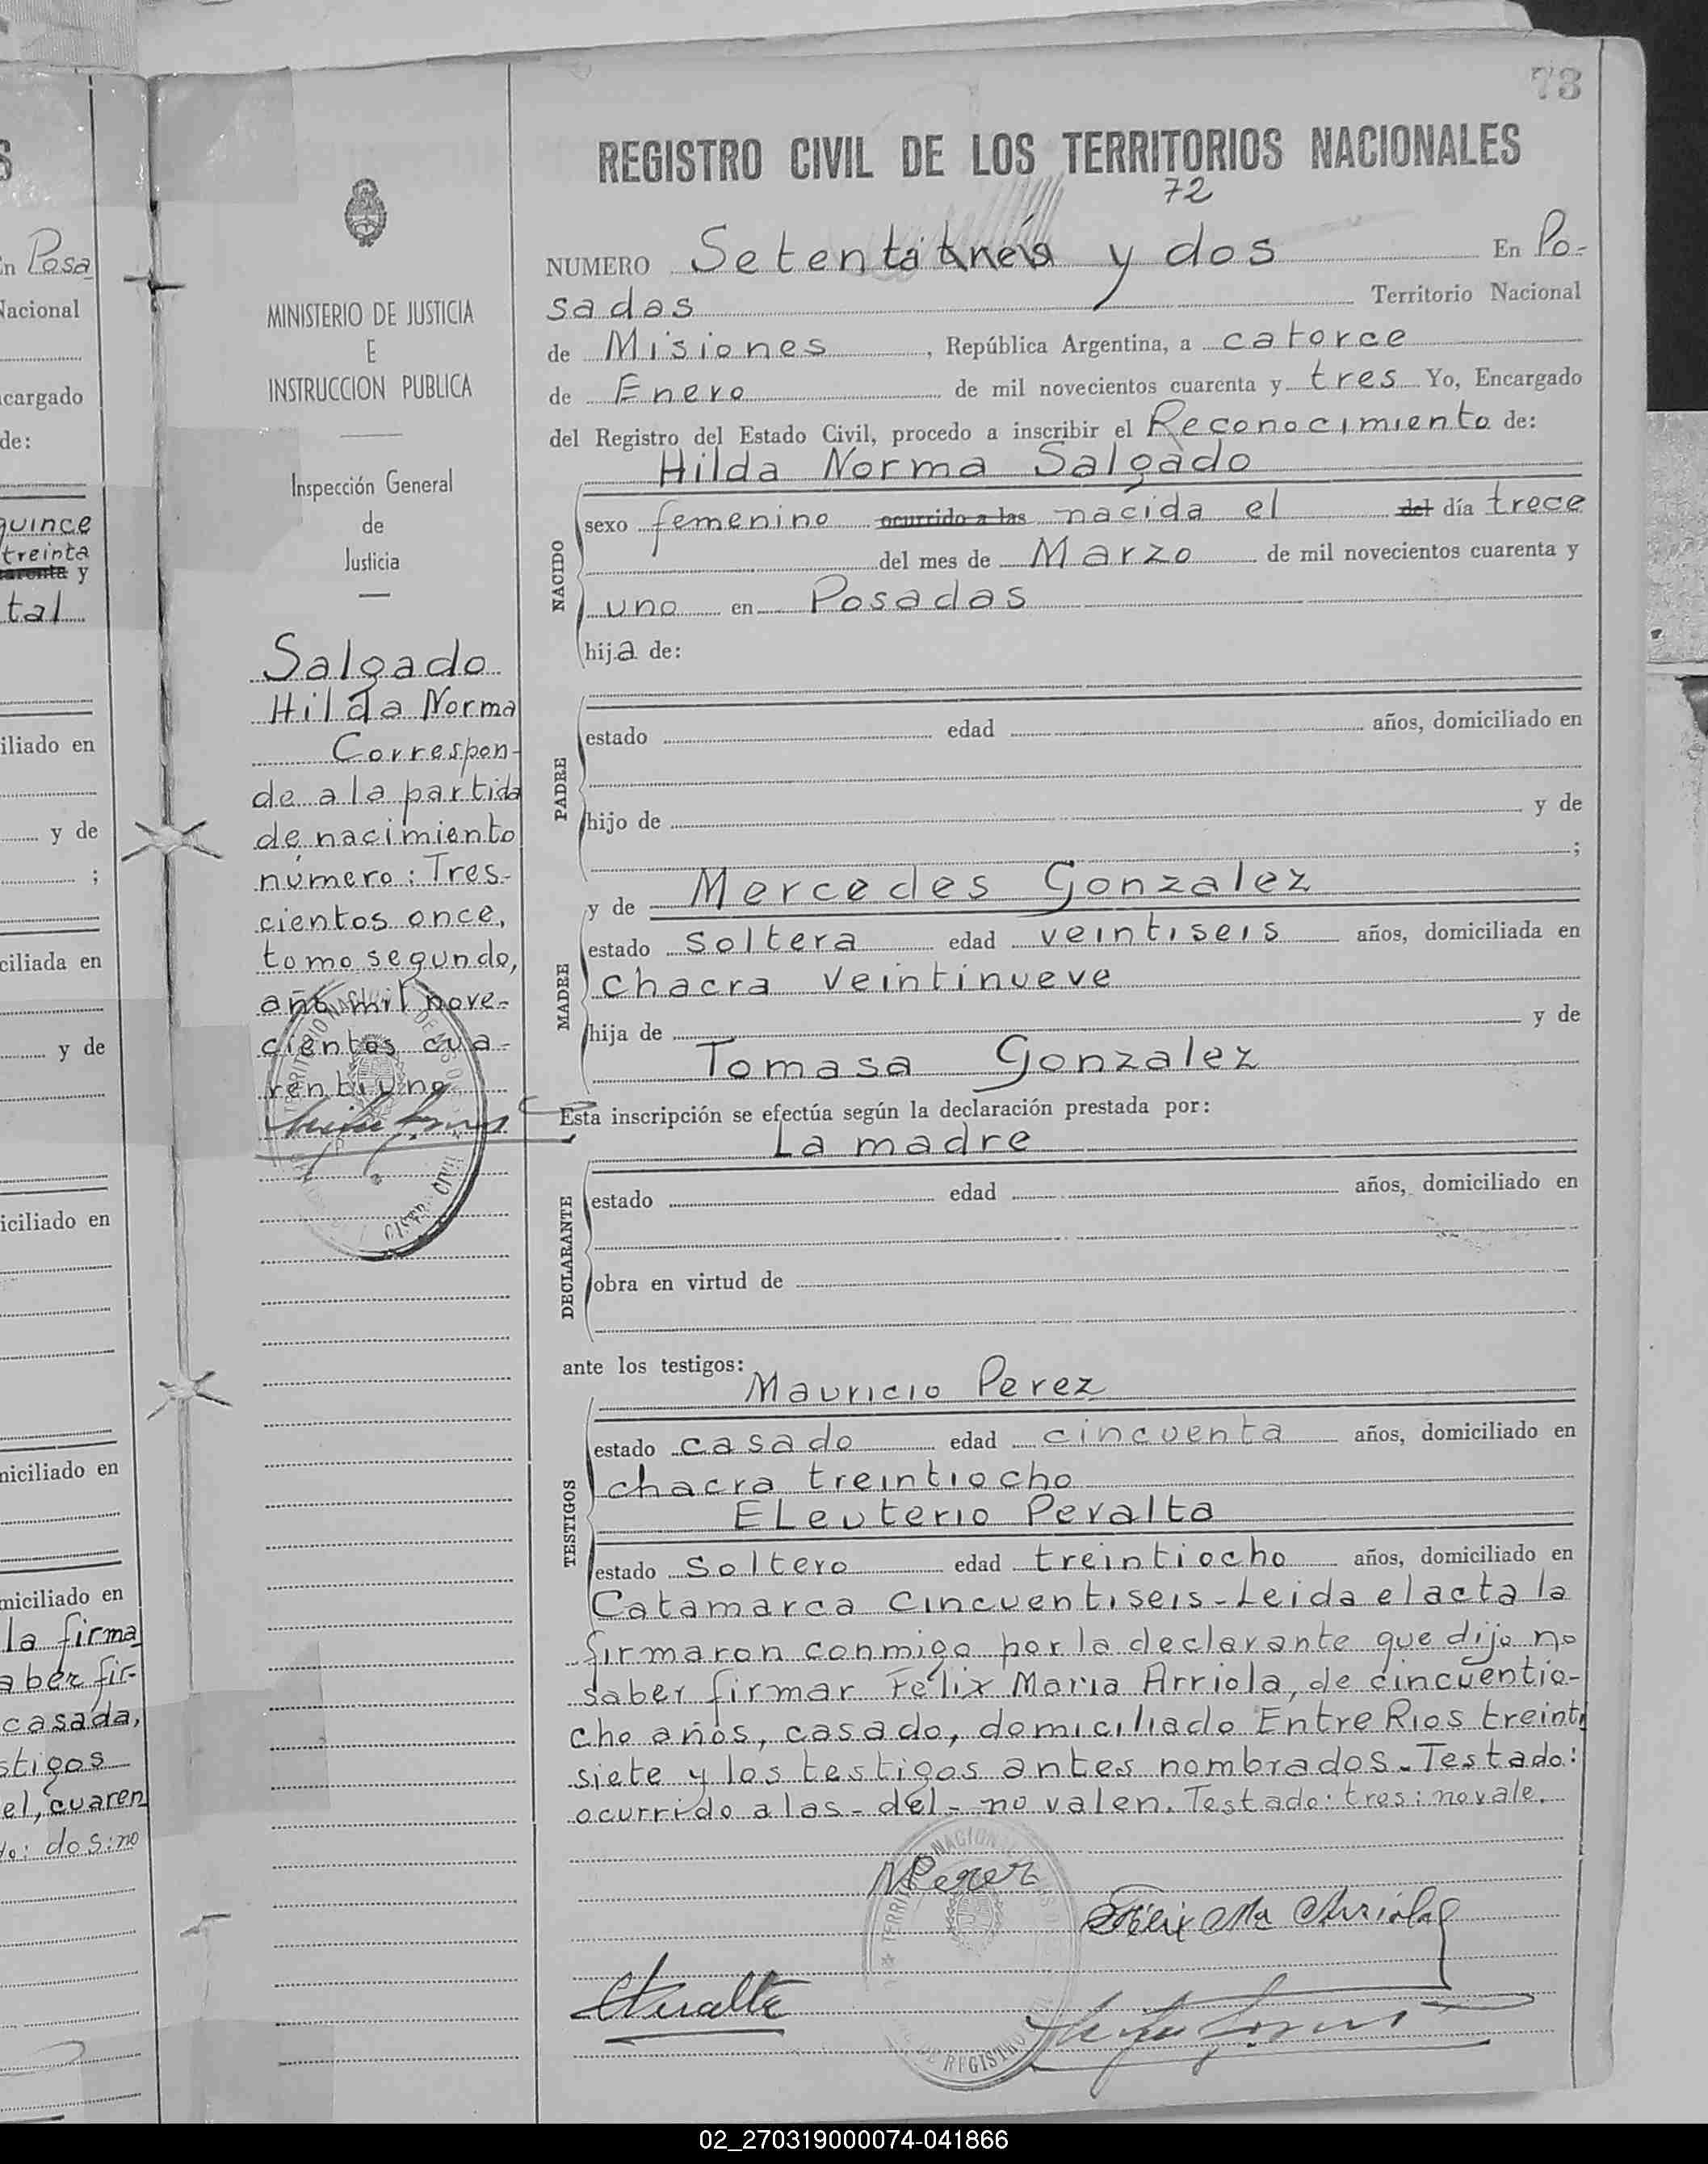 73
REGISTRO CIVIL DE LOS TERRITORIOS NACIONALES
72
NUMERO Setenta y dos En Po-
sadas Territorio Nacional
de Misiones, República Argentina, a catorce
de Enero de mil novecientos cuarenta y tres Yo, Encargado
del Registro del Estado Civil, procedo a inscribir el Reconocimiento de:
Hilda Norma Salgado
NACIDO
sexo femenino ocurrido a las nacida el del día trece
del mes de Marzo de mil novecientos cuarenta y
uno en Posadas
hija de:
PADRE
estado edad años, domiciliado en
hijo de y de
;
y de Mercedes Gonzalez
MADRE
estado soltera edad veintiseis años, domiciliada en
chacra veintinueve
hija de y de
Tomasa Gonzalez
Esta inscripción se efectúa según la declaración prestada por:
La madre
DECLARANTE
estado edad años, domiciliado en
obra en virtud de
ante los testigos:
Mauricio Perez
TESTIGOS
estado casado edad cincuenta años, domiciliado en
chacra treintiocho
ELeuterio Peralta
estado soltero edad treintiocho años, domiciliado en
Catamarca Cincuentiseis - Leida el acta la
firmaron conmigo por la declarante que dijo no
saber firmar Félix Maria Arriola, de cincuentio-
cho años, casado, domiciliado Entre Rios treinti
siete y los testigos antes nombrados. Testado:
ocurrido a las - del - no valen. Testado: tres: no vale.
MPerez
Félix Ma Arriola
EPeralta
MINISTERIO DE JUSTICIA
E
INSTRUCCION PUBLICA
Inspección General
de
Justicia
Salgado
Hilda Norma
Correspon-
de a la partida
de nacimiento
número: Tres-
cientos once,
tomo segundo,
año mil nove-
cientos cua-
rentiuno
S
En Posa
Nacional
ncargado
de:
quince
treinta
y
tal
iliado en
y de
;
ciliada en
y de
iciliado en
niciliado en
miciliado en
la firma
aber fir-
casada,
stigos
el, cuaren
dos: no
02_270319000074-041866